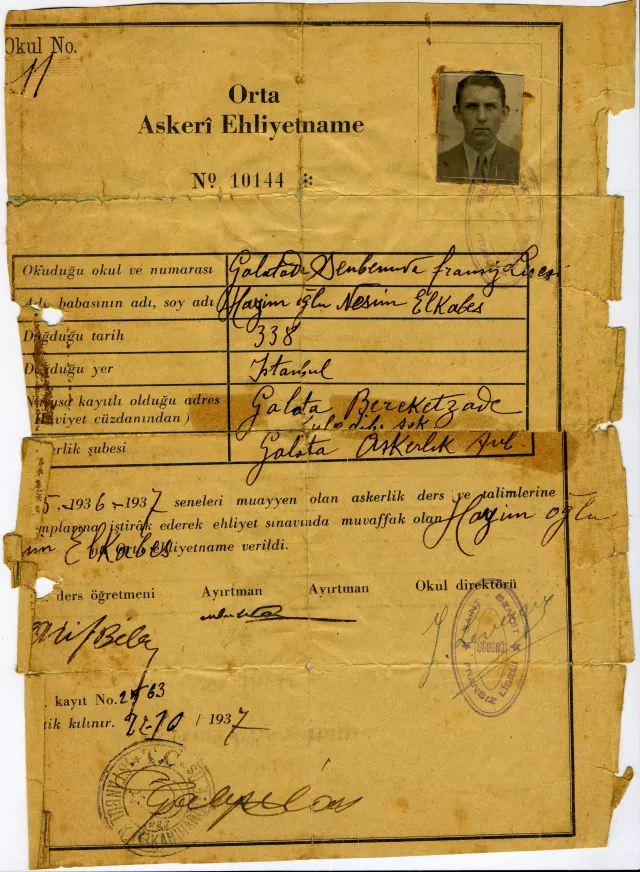 Okul No.
11
Orta
Askerî Ehliyetname
No 10144
Okuduğu okul ve numarası Galatada Senbenuva fransız Lisesi
Adı babasının adı, soy adı Hayim oğlu Nesim Elkabes
Doğduğu tarih 338
Doğduğu yer İstanbul
Nufusa kayıtlı olduğu adres Galata Bereketzade
Hüviyet cüzdanından)
erlik şubesi Galata Askerlik Şub.
5-1936-1937 seneleri muayyen olan askerlik ders ve talimlerine
mplarına iştirâk ederek ehliyet sınavında muvaffak olan Hayim oğlu
im Elkabes ehliyetname verildi.
ders öğretmeni Ayırtman Ayırtman Okul direktörü
SAINT BENOIT
FRANSIZ LİSESİ
kayıt No. 2763
tik kılınır. 22-10 / 1937
T.C.